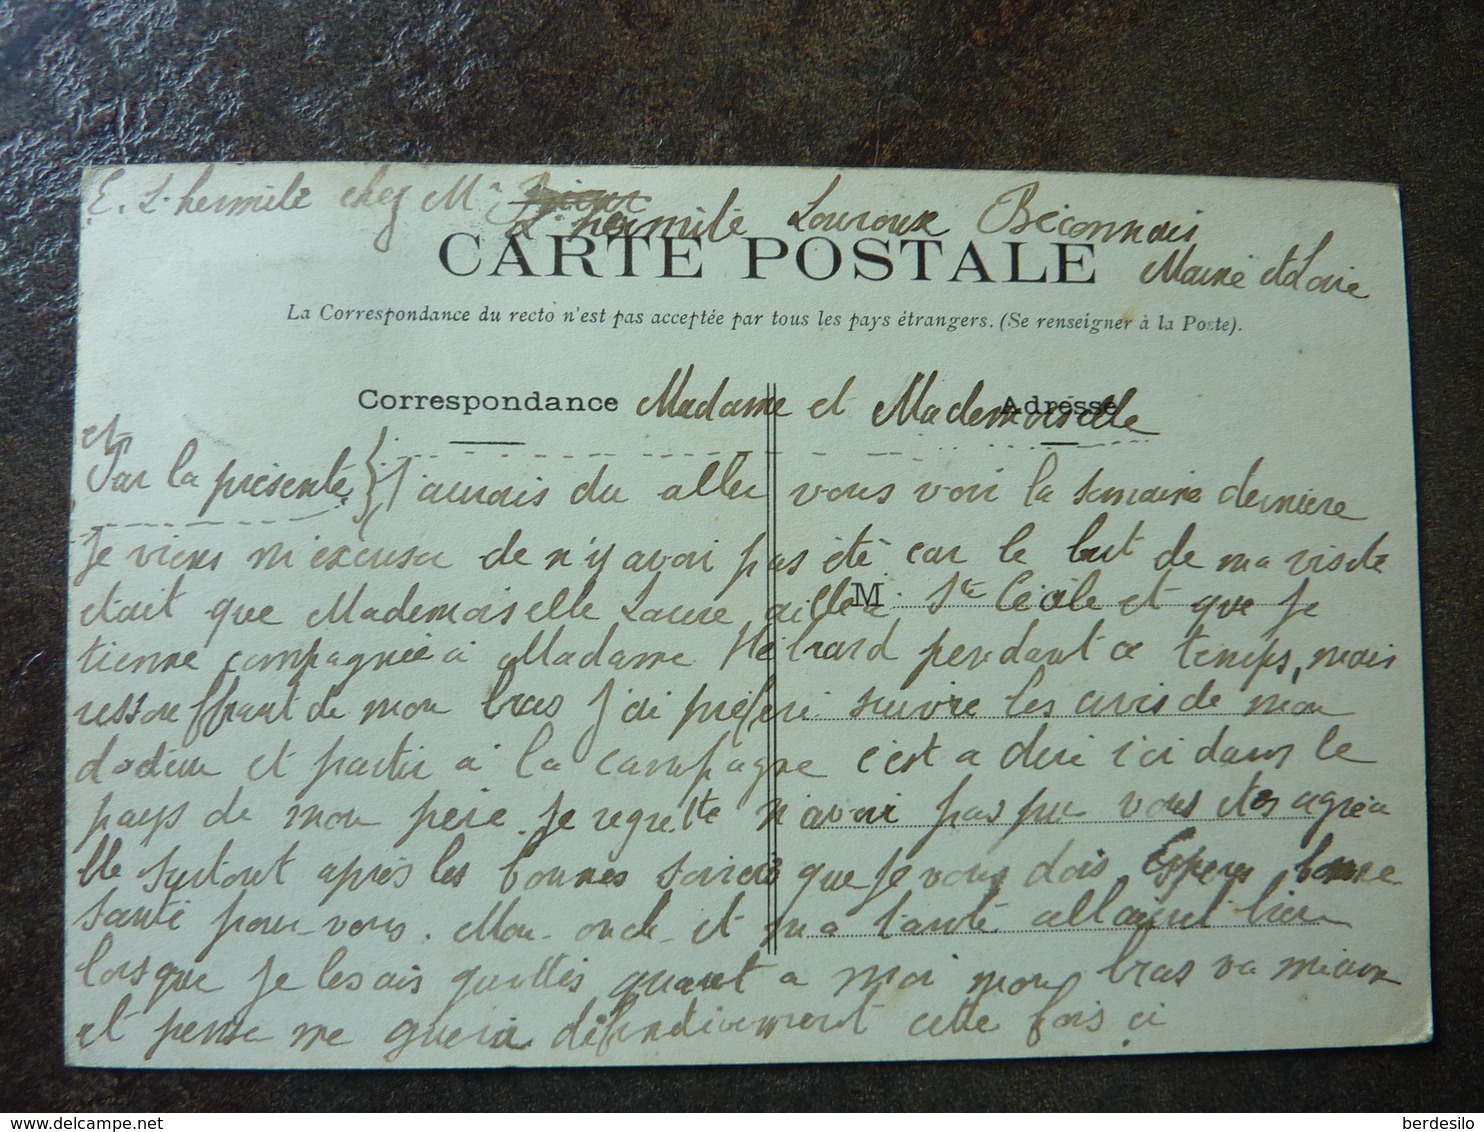 E. L'hermite chez Mr
L'hermite Louroux Béconnais
Maine et Loire
CARTE POSTALE
La Correspondance du recto n'est pas acceptée par tous les pays étrangers. (Se renseigner à la Poste).
Correspondance Adresse
Madame et Mademoiselle
et
Par la présente J'aurais du aller vous voir la semaine dernière
Je viens m'excuser de n'y avoir pas été car le but de ma visite
était que Mademoiselle Laure aille à Ste Cécile et que je
M
tienne compagnée à Madame Hébrard pendant ce temps, mais
ressouffrant de mon bras j'ai préféré suivre les avis de mon
docteur et partir à la campagne c'est a dire ici dans le
pays de mon père. Je regrette n'avoir pas pu vous etes agréa
ble surtout après les bonnes que je vous dois bonne
santé pour vous. Mon oncle et ma tante allaient bien
lorsque je les ais quittés quant a moi mon bras va mieux
et pense me guérir définitivement cette fois ci
berdesilo